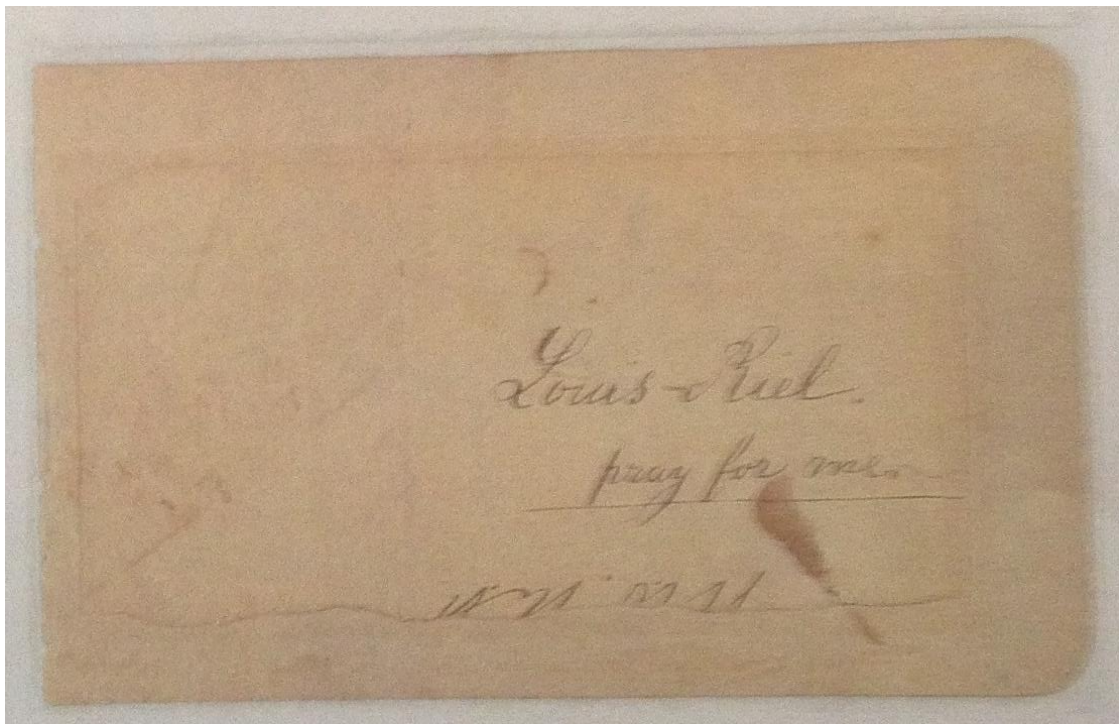 Louis-Riel.
pray for me.